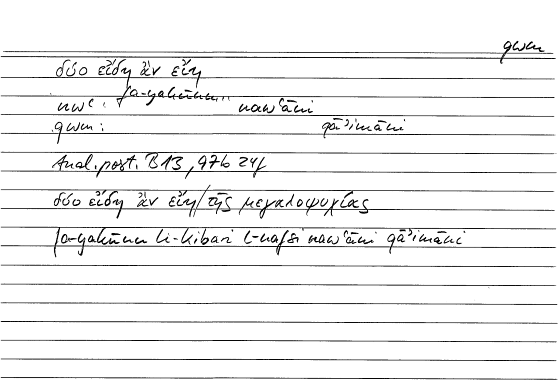 qwm
δύο εἴδη ἂν εἴη
nwʿ: fa-yakūnu nawʿāni
qwm: qāʾimāni
Anal. post. B 13, 97b 24f
δύο εἴδη ἂν εἴη/τῆς μεγαλοψυχίας
fa-yakūnu li-kibari l-nafsi nawʿāni qāʾimāni